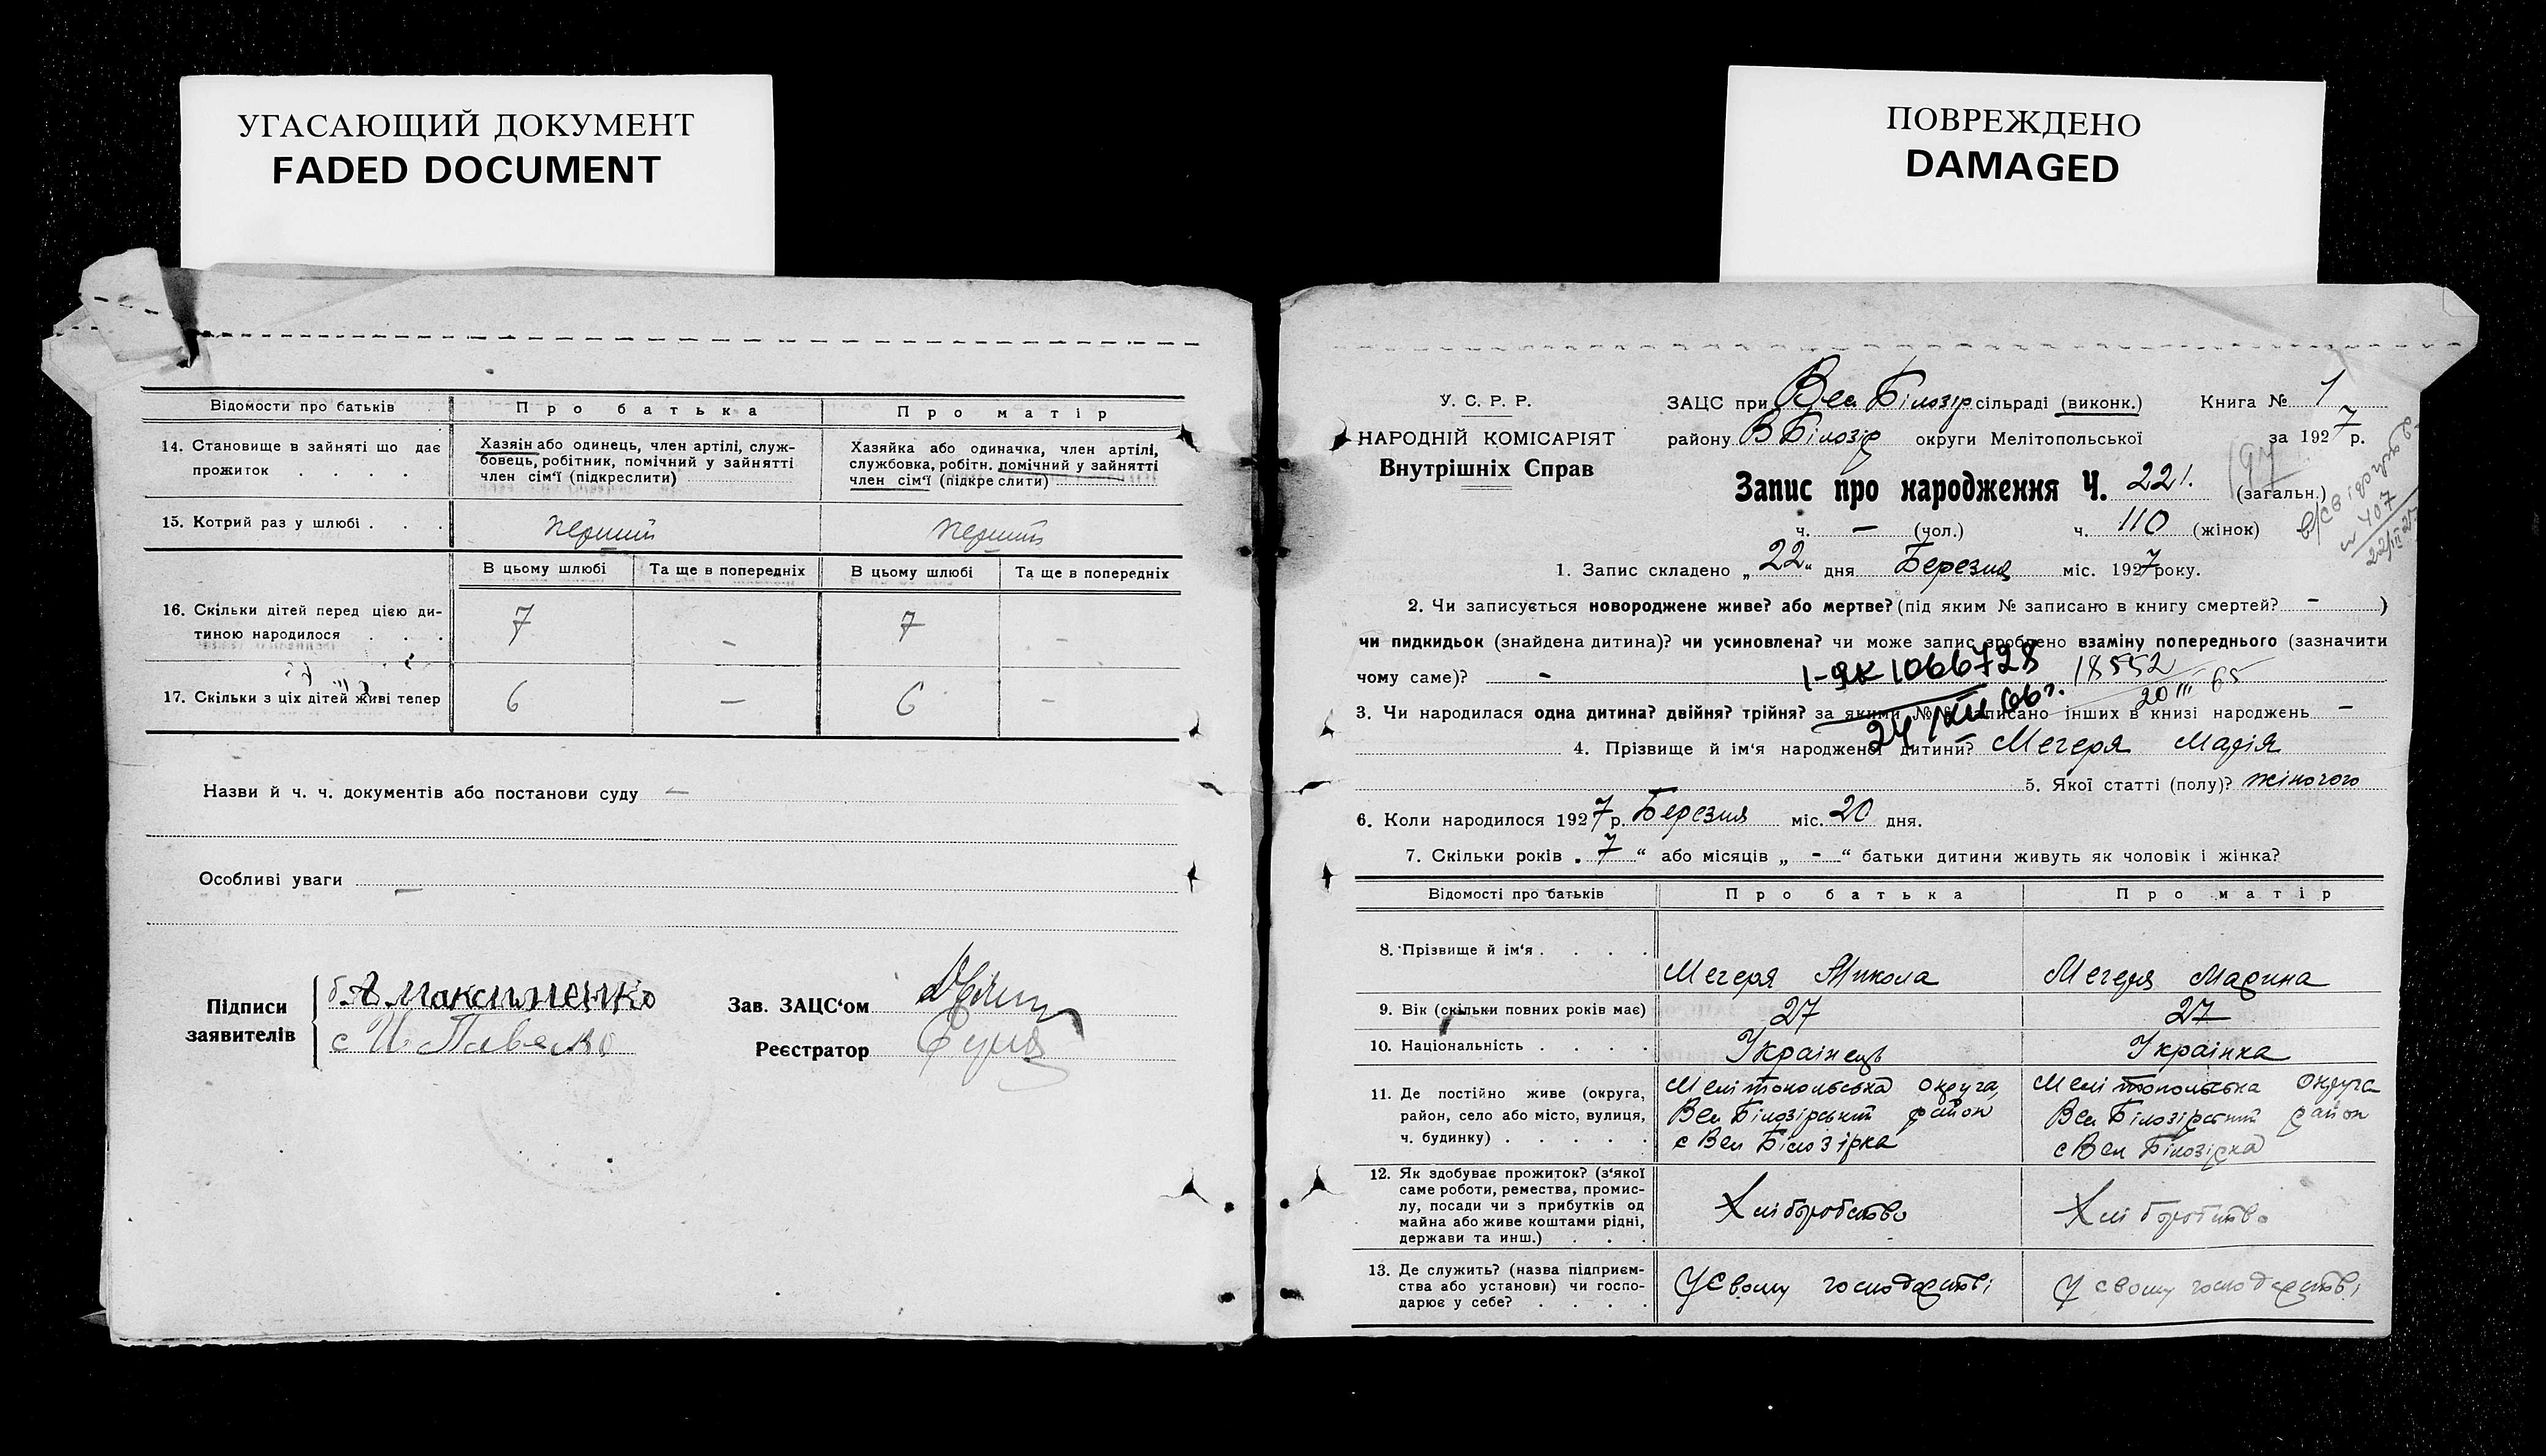 УГАСАЮЩИЙ ДОКУМЕНТ
FADED DOCUMENT
ПОВРЕЖДЕНО
DAMAGED
Відомости про батьків
Про батька
Про матір
14. Становище в зайняті що дає прожиток . . . .
Хазяїн або одинець, член артілі, служ-
бовець, робітник, помічний у зайнятті
член сім'ї (підкреслити)
Хазяйка або одиначка, член артілі,
службовка, робітн. помічний у зайнятті
член сім'ї (підкреслити)
15. Котрий раз у шлюбі . . .
перший
перший
В цьому шлюбі
Та ще в попередніх
В цьому шлюбі
Та ще в попередніх
16. Скільки дітей перед цією ди-
тиною народилося . . .
7 - 7 -
17. Скільки з ціх дітей живі тепер
6 - 6 -
Назви й ч. ч. документів або постанови суду -
Особливі уваги -
Підписи
заявителів
А Максименко
Зав. ЗАЦС'ом
Реєстратор
У. С. Р. Р.
НАРОДНІЙ КОМІСАРІЯТ
Внутрішніх Справ
ЗАЦС при Вел Білозір сільраді (виконк.)
Книга № 1
району В Білозір округи Мелітопольської
за 1927 р.
Запис про народження Ч. 221. (загальн.)
407
22/III 27
ч. - (чол.) ч. 110 (жінок)
1. Запис складено „22“ дня Березня міс. 1927 року.
2. Чи записується новороджене живе? або мертве? (під яким № записано в книгу смертей? - )
чи пидкидьок (знайдена дитина)? чи усиновлена? чи може запис зроблено взаміну попереднього (зазначити
чому саме)? -
1-ЯК 1066728
24/XII 66 г.
18552
20 III 65
3. Чи народилася одна дитина? двійня? трійня? за якими №№ записано інших в книзі народжень -
4. Прізвище й ім'я народженої дитини? Мегеря Марія
5. Якої статті (полу)? жіночого
6. Коли народилося 1927 р. Березня міс. 20 дня.
7. Скільки років „7“ або місяців „-“ батьки дитини живуть як чоловік і жінка?
Відомості про батьків
Про батька
Про матір
8. Прізвище й ім'я . . . .
Мегеря Микола
Мегеря Марина
9. Вік (скільки повних років має)
27
27
10. Національність . . . .
Українець
Українка
11. Де постійно живе (округа,
район, село або місто, вулиця,
ч. будинку) . . . . .
Мелітопольська округа,
Вел Білозірський район
с Вел Білозірка
Мелітопольська округа
Вел Білозірський район
с Вел Білозірка
12. Як здобуває прожиток? (з'якої
саме роботи, ремества, промис-
лу, посади чи з прибутків од
майна або живе коштами рідні,
держави та инш.) . . .
Хліборобство
Хліборобство
13. Де служить? (назва підприєм-
ства або установи) чи госпо-
дарює у себе? . . . .
У свому господарстві
У свому господарстві